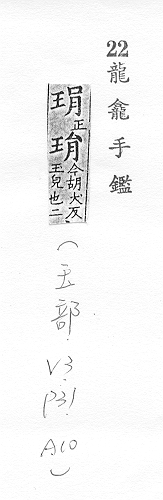 22 龍龕手鑑
琄正今胡犬反玉皃也二
（玉部．V3．P31．A10）